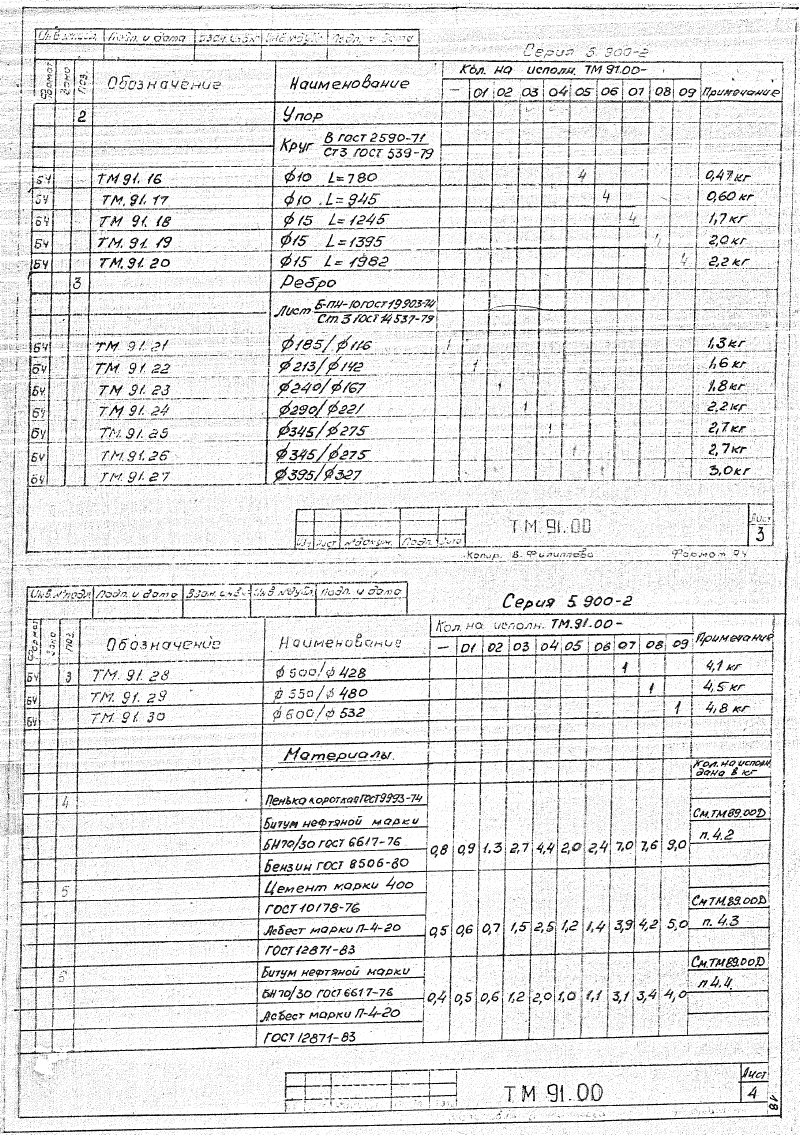 Инв.№подл. Подп. и дата Взам.инв.№ Инв.№дубл. Подп. и дата
Серия 5.900-2
Формат Зона Поз. Обозначение Наименование Кол. на исполн. ТМ 91.00- Примечание
— 01 02 03 04 05 06 07 08 09
2 Упор
Круг В ГОСТ 2590-71
Ст3 ГОСТ 539-79
БЧ ТМ 91.16 ф10 L=780 4 0,47кг
БЧ ТМ. 91.17 ф10 L=945 4 0,60кг
БЧ ТМ 91. 18 ф15 L=1245 4 1,7кг
БЧ ТМ 91. 19 ф15 L=1395 4 2,0кг
БЧ ТМ. 91. 20 ф15 L=1982 4 2,2кг
3 Ребро
Лист Б-ПН-10 ГОСТ 19903-74
Ст 3 ГОСТ 14537-79
БЧ ТМ. 91.21 ф185/ф116 1 1,3кг
БЧ ТМ. 91.22 ф213/ф142 1 1,6кг
БЧ ТМ 91. 23 ф240/ф167 1 1,8кг
БЧ ТМ 91. 24 ф290/ф221 1 2,2кг
БЧ ТМ 91. 25 ф345/ф275 1 2,7кг
БЧ ТМ. 91.26 ф345/ф275 1 2,7кг
БЧ ТМ. 91.27 ф395/ф327 1 3,0кг
ТМ.91.00 Лист
Изм Лист №докум. Подп. Дата 3
Копир. В. Филиппова Формат А4
Инв.№подл Подп. и дата Взам.инв.№ Инв.№дубл. Подп. и дата
Серия 5.900-2
Формат Зона Поз. Обозначение Наименование Кол. на исполн. ТМ.91.00- Примечание
— 01 02 03 04 05 06 07 08 09
БЧ 3 ТМ. 91.28 ф500/ф428 1 4,1 кг
БЧ ТМ. 91. 29 ф550/ф480 1 4,5 кг
БЧ ТМ. 91. 30 ф600/ф532 1 4,8 кг
Материалы.
Кол. на исполн.
дана в кг
4 Пенька короткая ГОСТ 9993-74
Битум нефтяной марки См. ТМ 89.00Д
БН70/30 ГОСТ 6617-76 0,8 0,9 1,3 2,7 4,4 2,0 2,4 7,0 7,6 9,0 п. 4.2
Бензин ГОСТ 8506-80
5 Цемент марки 400
ГОСТ 10178-76 См ТМ 89.00Д
Асбест марки П-4-20 0,5 0,6 0,7 1,5 2,5 1,2 1,4 3,9 4,2 5,0 п. 4.3
ГОСТ 12871-83
6 Битум нефтяной марки См. ТМ 89.00Д
БН70/30 ГОСТ 6617-76 0,4 0,5 0,6 1,2 2,0 1,0 1,1 3,1 3,4 4,0 п 4.4
Асбест марки П-4-20
ГОСТ 12871-83
ТМ 91.00 Лист
4
18